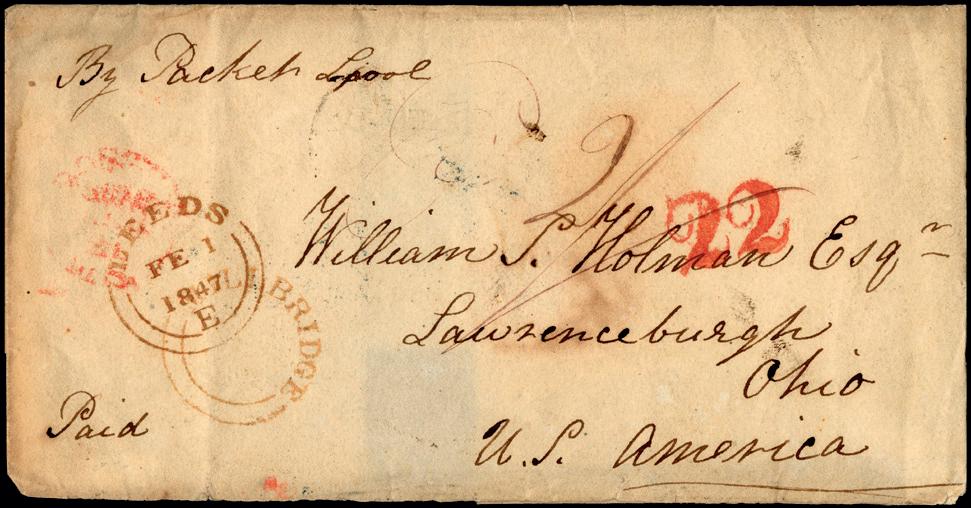 By Packet Lpool
LEEDS
FE 1
1847
E
BRIDGE
2/
22
William S. Holman Esqr
Lawrenceburgh
Ohio
Paid
U.S. America